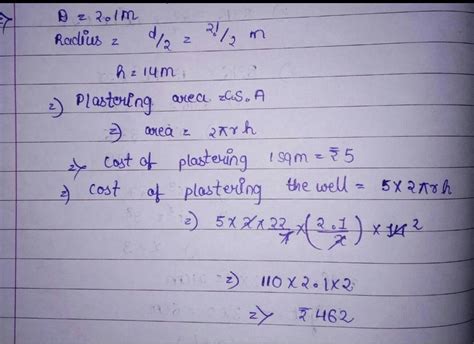 => D = 2.1m
Radius = d/2 = 2.1/2 m
h = 14m
=) Plastering area = CS.A
=) area = 2πrh
=> Cost of plastering 1 sqm = ₹5
=) Cost of plastering the well = 5 × 2πrh
=) 5 × 2 × 22/7 × (2.1/2) × 14 2
=) 110 × 2.1 × 2
=> ₹462